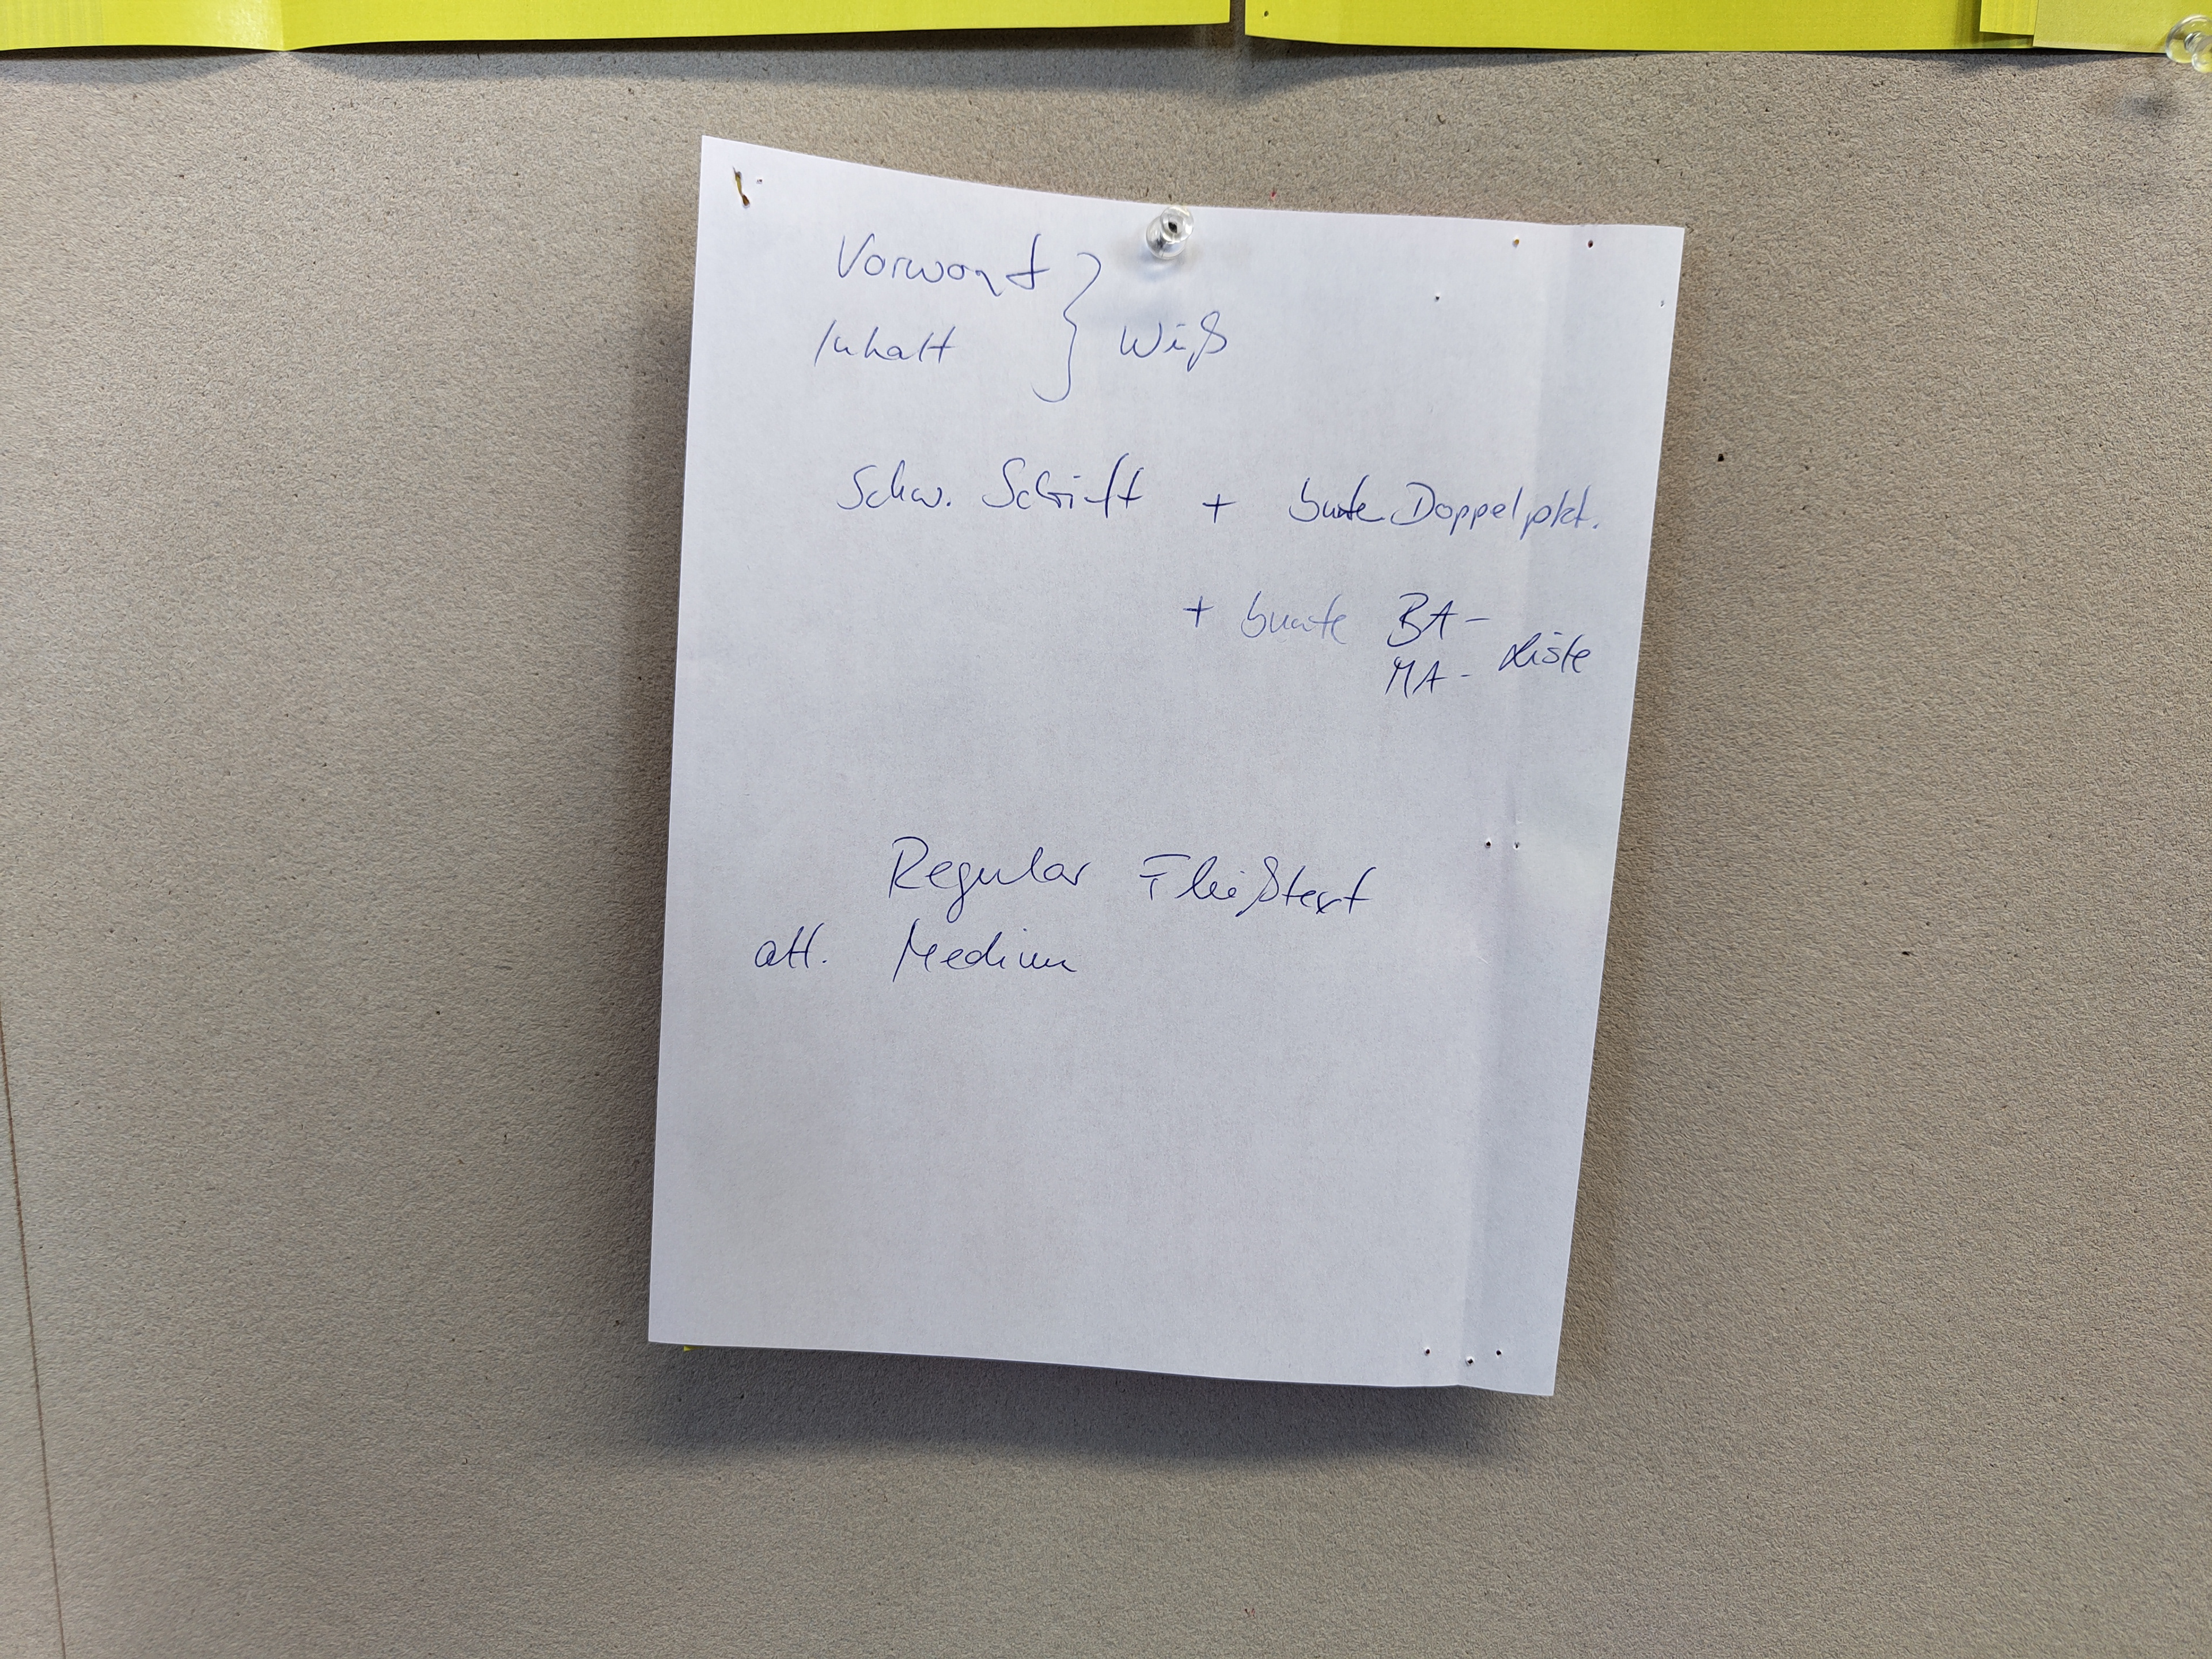 Vorwort
Inhalt } Weiß
Schw. Schrift + bunte Doppelpkt.
+ bunte BA-
MA- Liste
Regular Fließtext
alt. Medium